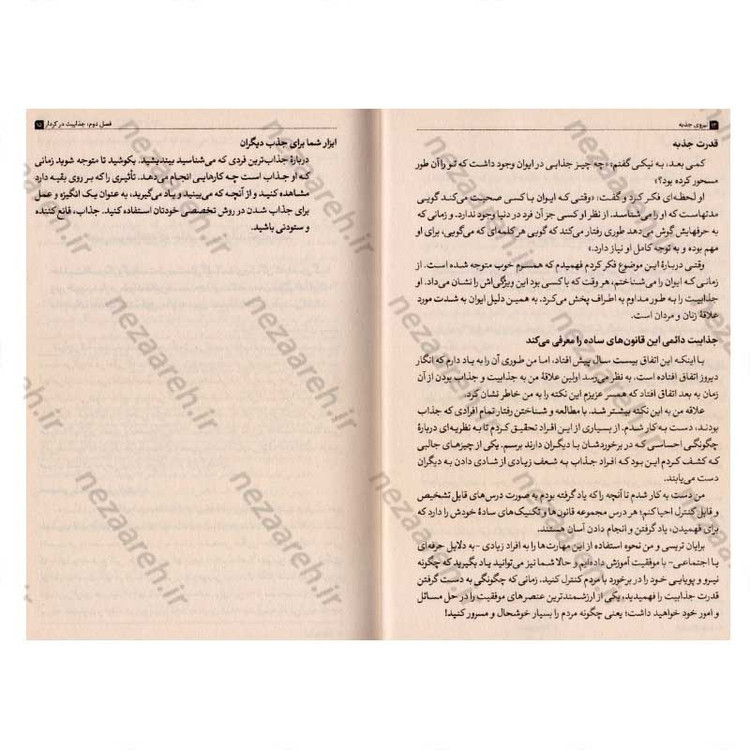 نیروی جذبه
قدرت جذبه
کمی بعد، به نیکی گفتم: «چه چیز جذابی در ایوان وجود داشت که تو را آن طور
مسحور کرده بود؟»
او لحظه‌ای فکر کرد و گفت: «وقتی که ایوان با کسی صحبت می‌کند گویی
مدتهاست که او را می‌شناسد. از نظر او کسی جز آن فرد در دنیا وجود ندارد. و زمانی که
به حرفهایش گوش می‌دهد طوری رفتار می‌کند که گویی هر کلمه‌ای که می‌گویی، برای او
مهم بوده و به توجه کامل او نیاز دارد.»
وقتی دربارهٔ این موضوع فکر کردم فهمیدم که همسرم خوب متوجه شده است. از
زمانی که ایوان را می‌شناختم، هر وقت که با کسی بود این ویژگی‌اش را نشان می‌داد. او
جذابیت را به طور مداوم به اطراف پخش می‌کرد. به همین دلیل ایوان به شدت مورد
علاقهٔ زنان و مردان است.
جذابیت دائمی این قانون‌های ساده را معرفی می‌کند
با اینکه این اتفاق بیست سال پیش افتاد، اما من طوری آن را به یاد دارم که انگار
دیروز اتفاق افتاده است. به نظر می‌رسد اولین علاقهٔ من به جذابیت و جذاب بودن از آن
زمان به بعد اتفاق افتاد که همسر عزیزم این نکته را به من خاطر نشان کرد.
علاقه من به این نکته بیشتر شد. با مطالعه و شناختن رفتار تمام افرادی که جذاب
بودند، دست به کار شدم. از بسیاری از این افراد تحقیق کردم تا به نظریه‌ای دربارهٔ
چگونگی احساسی که در برخوردشان با دیگران دارند برسم. یکی از چیزهای جالبی
که کشف کردم این بود که افراد جذاب به شعف زیادی از شادی دادن به دیگران
دست می‌یابند.
من دست به کار شدم تا آنچه را که یاد گرفته بودم به صورت درس‌های قابل تشخیص
و قابل کنترل احیا کنم؛ هر درس مجموعه قانون‌ها و تکنیک‌های سادهٔ خودش را دارد که
برای فهمیدن، یاد گرفتن و انجام دادن آسان هستند.
برایان تریسی و من نحوه استفاده از این مهارت‌ها را به افراد زیادی -به دلایل حرفه‌ای
یا اجتماعی- با موفقیت آموزش داده‌ایم و حالا شما نیز می‌توانید یاد بگیرید که چگونه
نیرو و پویایی خود را در برخورد با مردم کنترل کنید. زمانی که چگونگی به دست گرفتن
قدرت جذابیت را فهمیدید، یکی از ارزشمندترین عنصرهای موفقیت را در حل مسائل
و امور خود خواهید داشت؛ یعنی چگونه مردم را بسیار خوشحال و مسرور کنید!
فصل دوم: جذابیت در کردار
ابزار شما برای جذب دیگران
دربارهٔ جذاب‌ترین فردی که می‌شناسید بیندیشید. بکوشید تا متوجه شوید زمانی
که او جذاب است چه کارهایی انجام می‌دهد. تأثیری را که بر روی بقیه دارد
مشاهده کنید و از آنچه که می‌بینید و یاد می‌گیرید، به عنوان یک انگیزه و عمل
برای جذاب شدن در روش تخصصی خودتان استفاده کنید. جذاب، قانع کننده
و ستودنی باشید.
nezaareh.ir